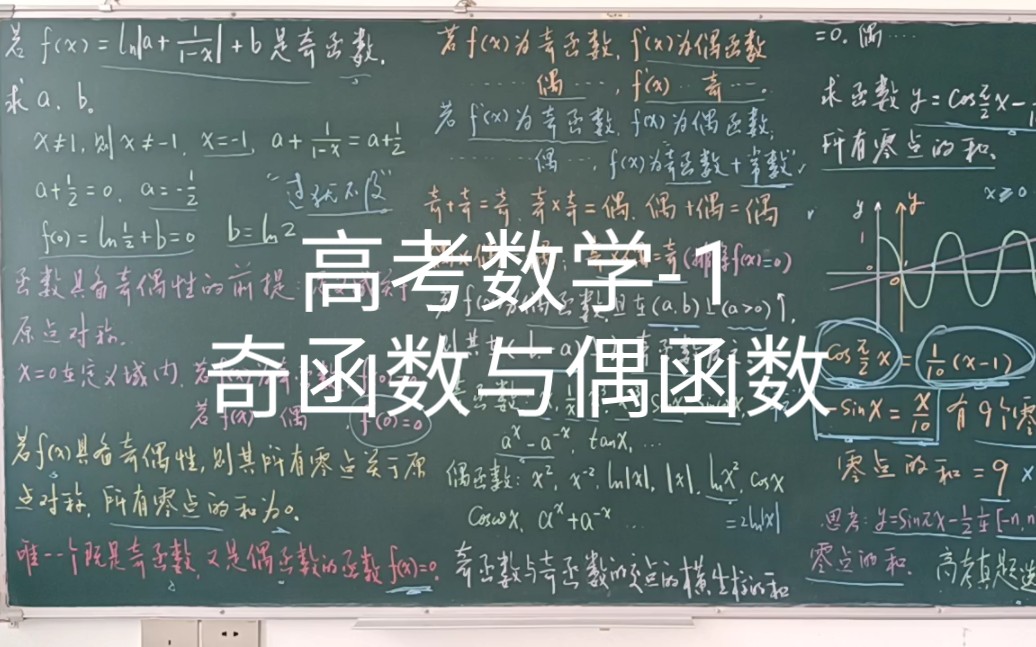 若 f(x) = ln|a + 1/(1-x)| + b 是奇函数.
求 a. b.
x≠1, 则 x≠-1. x=-1, a + 1/(1-x) = a+1/2
a+1/2 = 0. a=-1/2 "过犹不及"
f(0) = ln1/2+b=0 b=ln2
函数具备奇偶性的前提:
原点对称.
x=0在定义域内. 若
若f(x) 偶 f'(0)=0
若f(x)具备奇偶性,则其所有零点关于原
点对称. 所有零点的和为0.
唯一个既是奇函数,又是偶函数的函数 f(x)=0.
若f(x)为奇函数, f'(x)为偶函数
偶 , f'(x) 奇
若f'(x)为奇函数, f(x)为偶函数,
偶 , f(x)为奇函数+"常数",
奇+奇=奇, 奇×奇=偶. 偶+偶=偶
f(x)=0)
在(a.b)上(a>0)↑,
a^x-a^-x, tanx, ...
偶函数: x², x^-2, ln|x|, |x|, lnx², cosx
coswx, a^x+a^-x ... =2ln|x|
奇函数与奇函数的交点的横坐标的和
=0. 偶
求函数 y=cosπ/2x-
所有零点的和.
x≥0
y y
1
0
cosπ/2x = 1/10(x-1)
-sinx = x/10 有9个零
零点的和=9×
思考: y=sinπx-1/2在[-n,n
零点的和. 高考真题选
高考数学-1
奇函数与偶函数